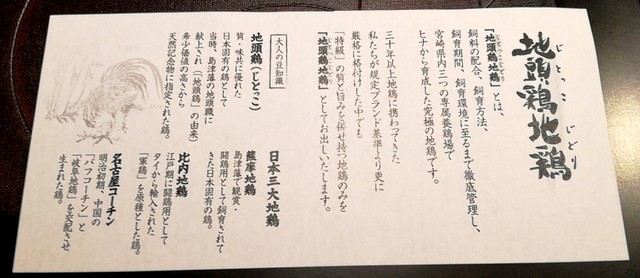 地頭鶏地鶏
じとっこ じどり
「地頭鶏地鶏」とは、
飼料の配合、飼育方法、
飼育期間、飼育環境に至るまで徹底管理し、
宮崎県内三つの専属養鶏場で
ヒナから育成した究極の地鶏です。
三十年以上地鶏に携わってきた
私たちが規定ブランド基準より更に
厳格に格付けした中でも
「特級」の質と旨みを併せ持つ地鶏のみを
「地頭鶏地鶏」としてお出しいたします。
大人の豆知識
地頭鶏(じとっこ)
質・味共に優れた
日本固有の鶏として
当時、島津藩の地頭職に
献上され(「地頭鶏」の由来)
希少価値の高さから
天然記念物に指定された鶏。
日本三大地鶏
薩摩地鶏
島津藩で観賞・
闘鶏用として飼育されて
きた日本固有の鶏。
比内地鶏
江戸期に闘鶏用として
タイから輸入された
「軍鶏」を原種とした鶏。
名古屋コーチン
明治初期、中国の
「バフコーチン」と
「岐阜地鶏」を交配させ
生まれた鶏。